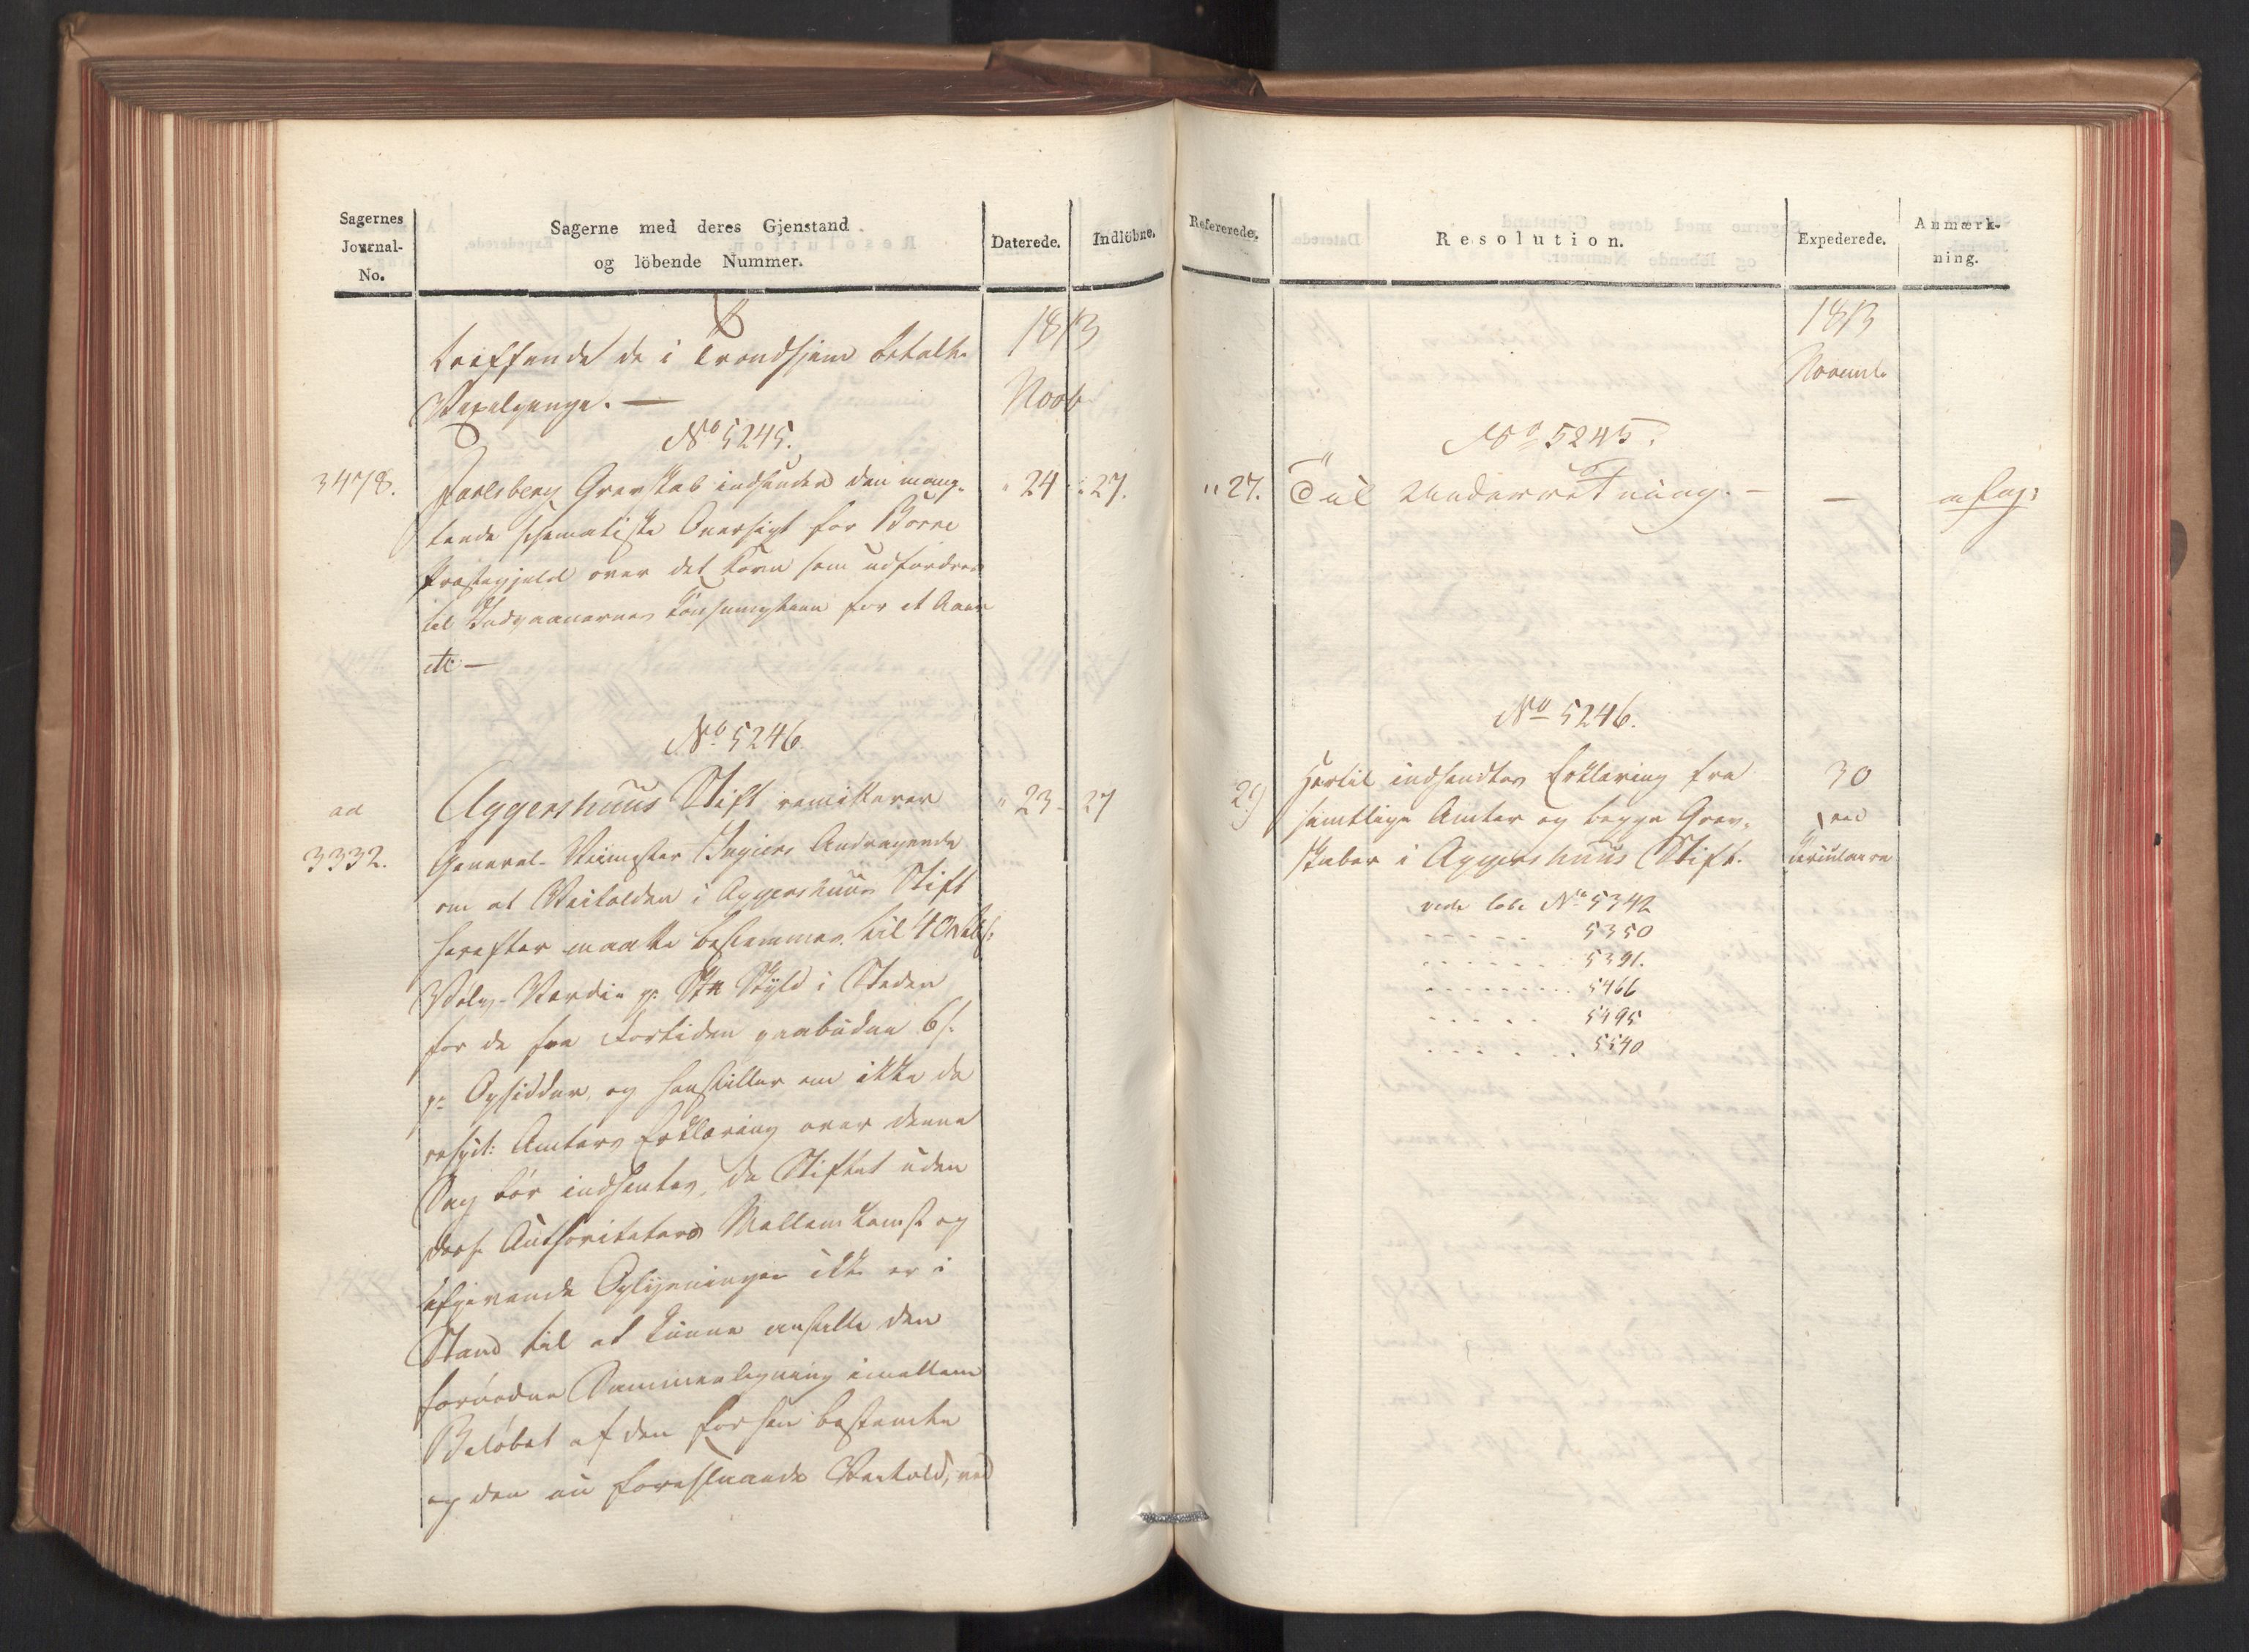 Sagernes
Journal-
No.
Sagerne med deres Gjenstand
og löbende Nummer.
Daterede.
Indlöbne.
1813
træffende de i Trondhjem betalte
Novb
Vexelpenge. —
No 5245.
3478.
Jarlsberg Grevskab indsender den mang-
24
27.
lende schematiske Oversigt for Borre
Præstegjeld over det Korn som udfordres
til Indvaanernes Consumption for et Aar
etc —
No 5246.
ad
3332.
Aggershuus Stift remitterer
23
27
General-Veimester Ingiers Andragende
om at Veitolden i Aggershuus Stift
herefter maatte bestemmes til
Sølv-Værdie pr. Skyld i Steden
for de fra Fortiden paabudne 6 s.
pr. Opsidder, og henstiller om ikke de
respt: Amters Erklæring over denne
Sag bør indhentes, da Stiftet uden
disse Authoriteters Mellemkomst og
afgivende Oplysninger ikke er i
Stand til at kunne anstille den
fornødne Sammenligning imellem
Beløbet af den forhen bestemte
og den nu foreslaaede Veitold, ved
Refererede.
Resolution.
Expederede.
Anmærk-
ning.
1813
Novemb.
No 5245.
27.
Til Underretning. —
—
No 5246.
29
Hertil indhentes Erklæring fra
30
samtlige Amter og begge Grev-
ved
skaber i Aggershuus Stift.
Circulaire
vide løbe No 5342
5350
5391.
5466
5495
5540